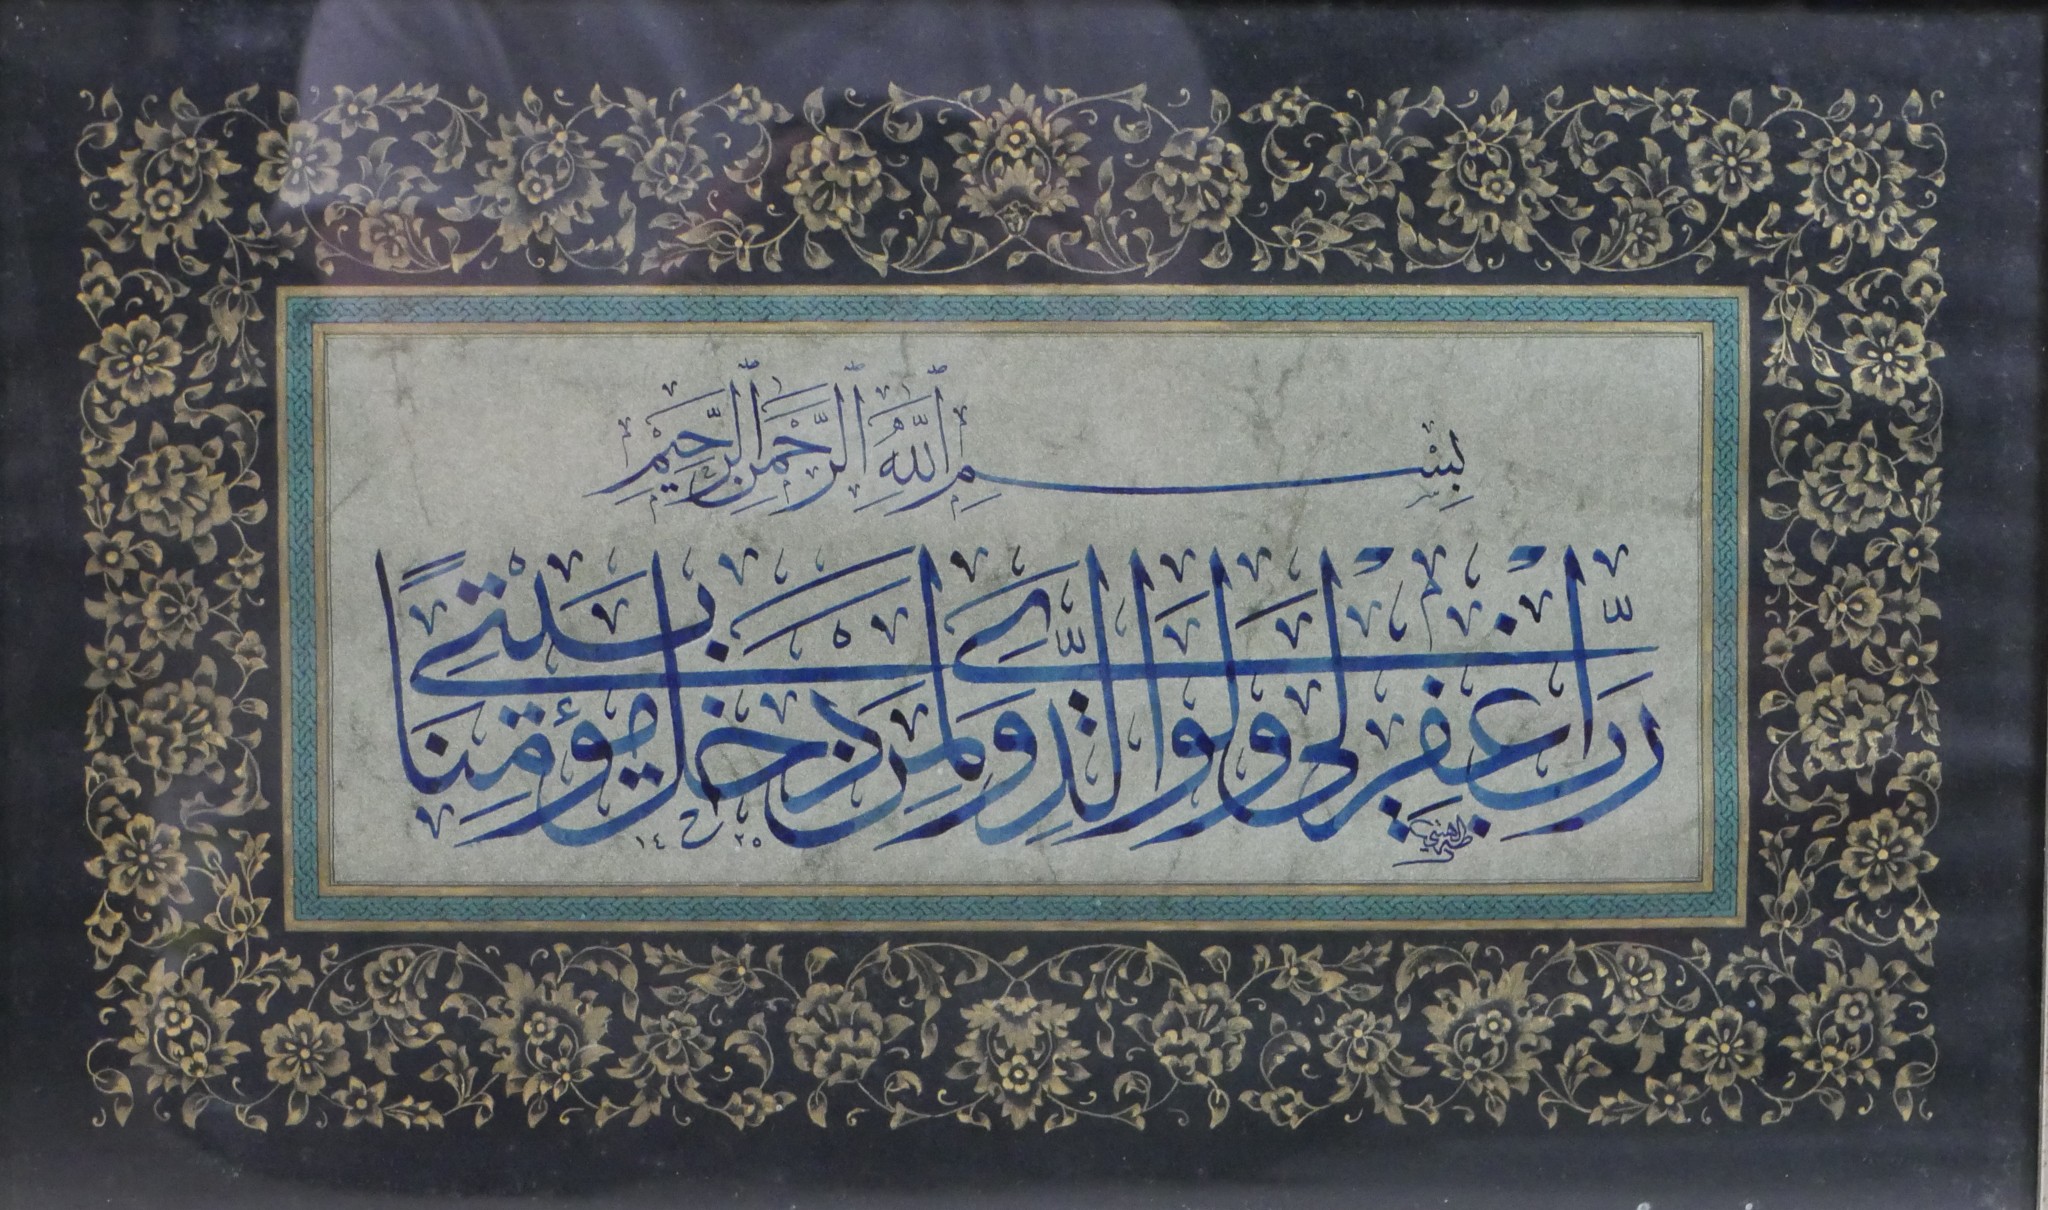 بِسْمِ اللَّهِ الرَّحْمٰنِ الرَّحِيمِ
رَبِّ اغْفِرْ لِي وَلِوَالِدَيَّ وَلِمَنْ دَخَلَ بَيْتِيَ مُؤْمِنًا
١٤٢٥